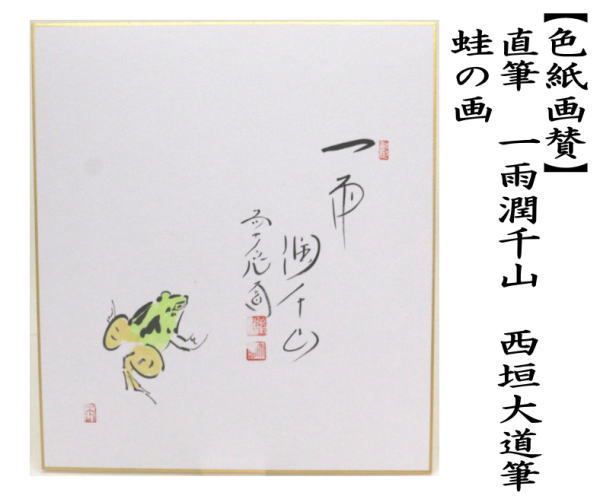 【色紙画賛】
直筆 一雨潤千山 西垣大道筆
蛙の画
一雨
潤千山